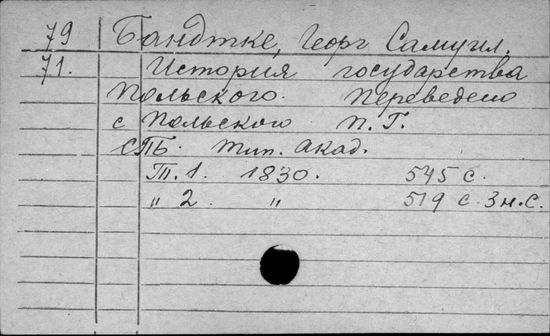 79 Бандтке, Георг Самуил.
71. История государства
Польского. Переведено
с Польского П. Г.
СПБ. тип. Акад.
Т. 1. 1830. 545 с.
" 2. " 519 с. 3 н. С.